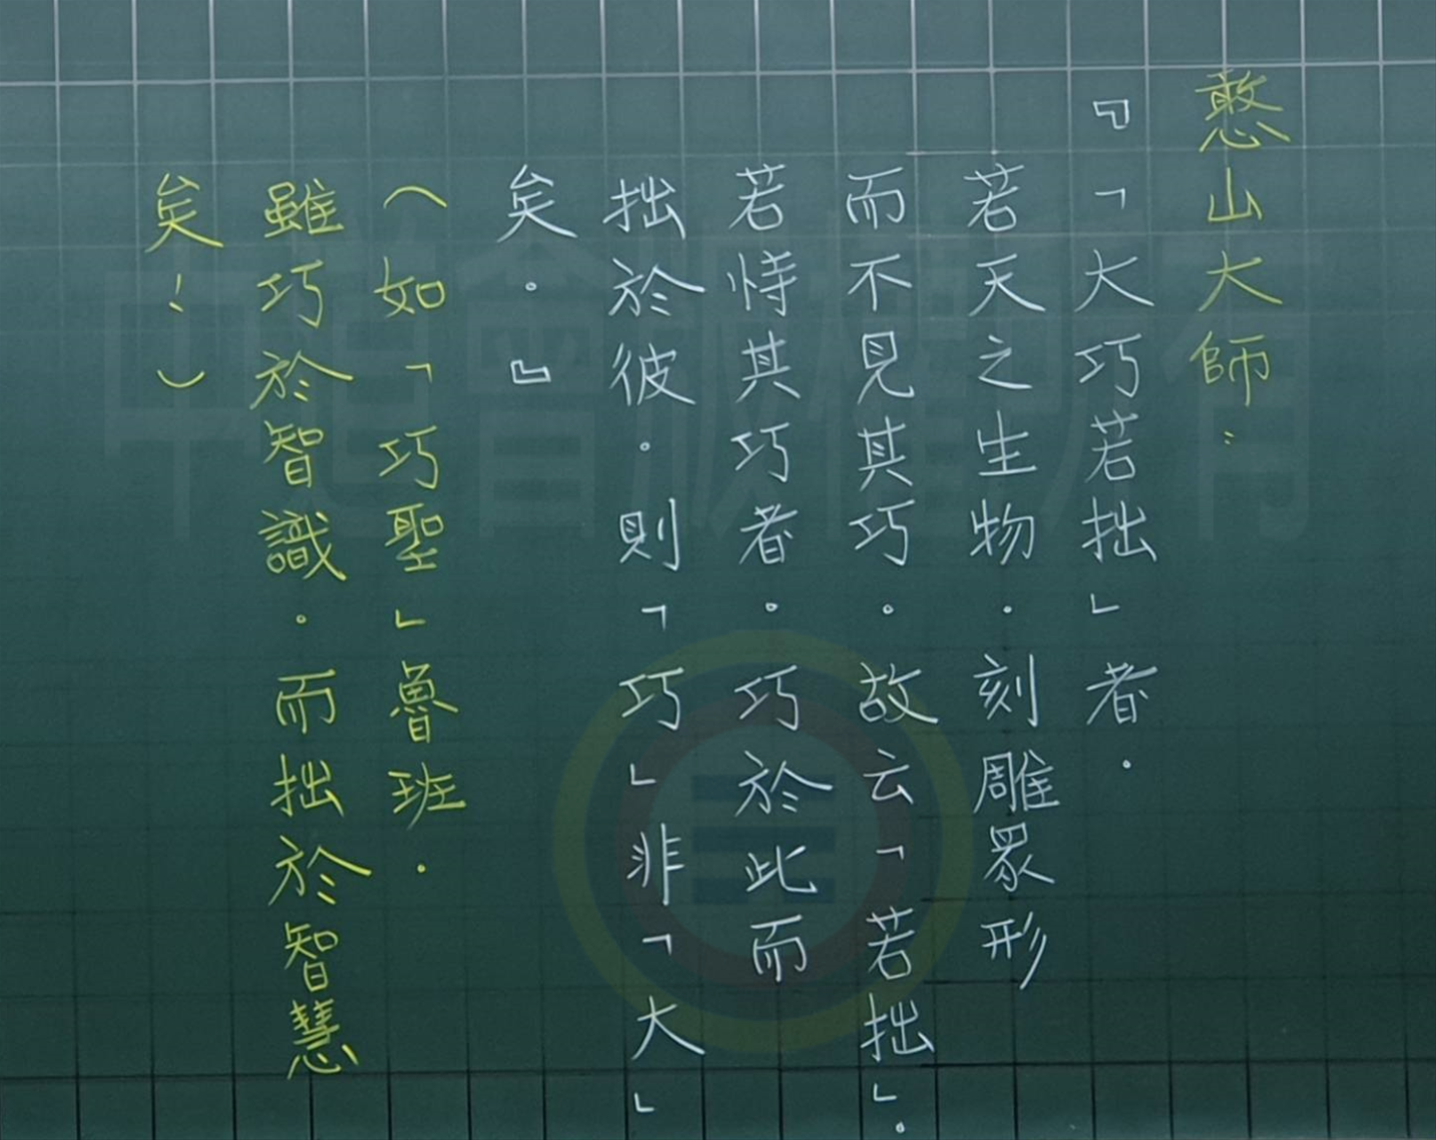 憨山大師：
『「大巧若拙」者．
若天之生物．刻雕眾形
而不見其巧。故云「若拙」。
若恃其巧者。巧於此而
拙於彼。則「巧」非「大」
矣。』
（如「巧聖」魯班．
雖巧於智識．而拙於智慧
矣！）
中華會版權所有